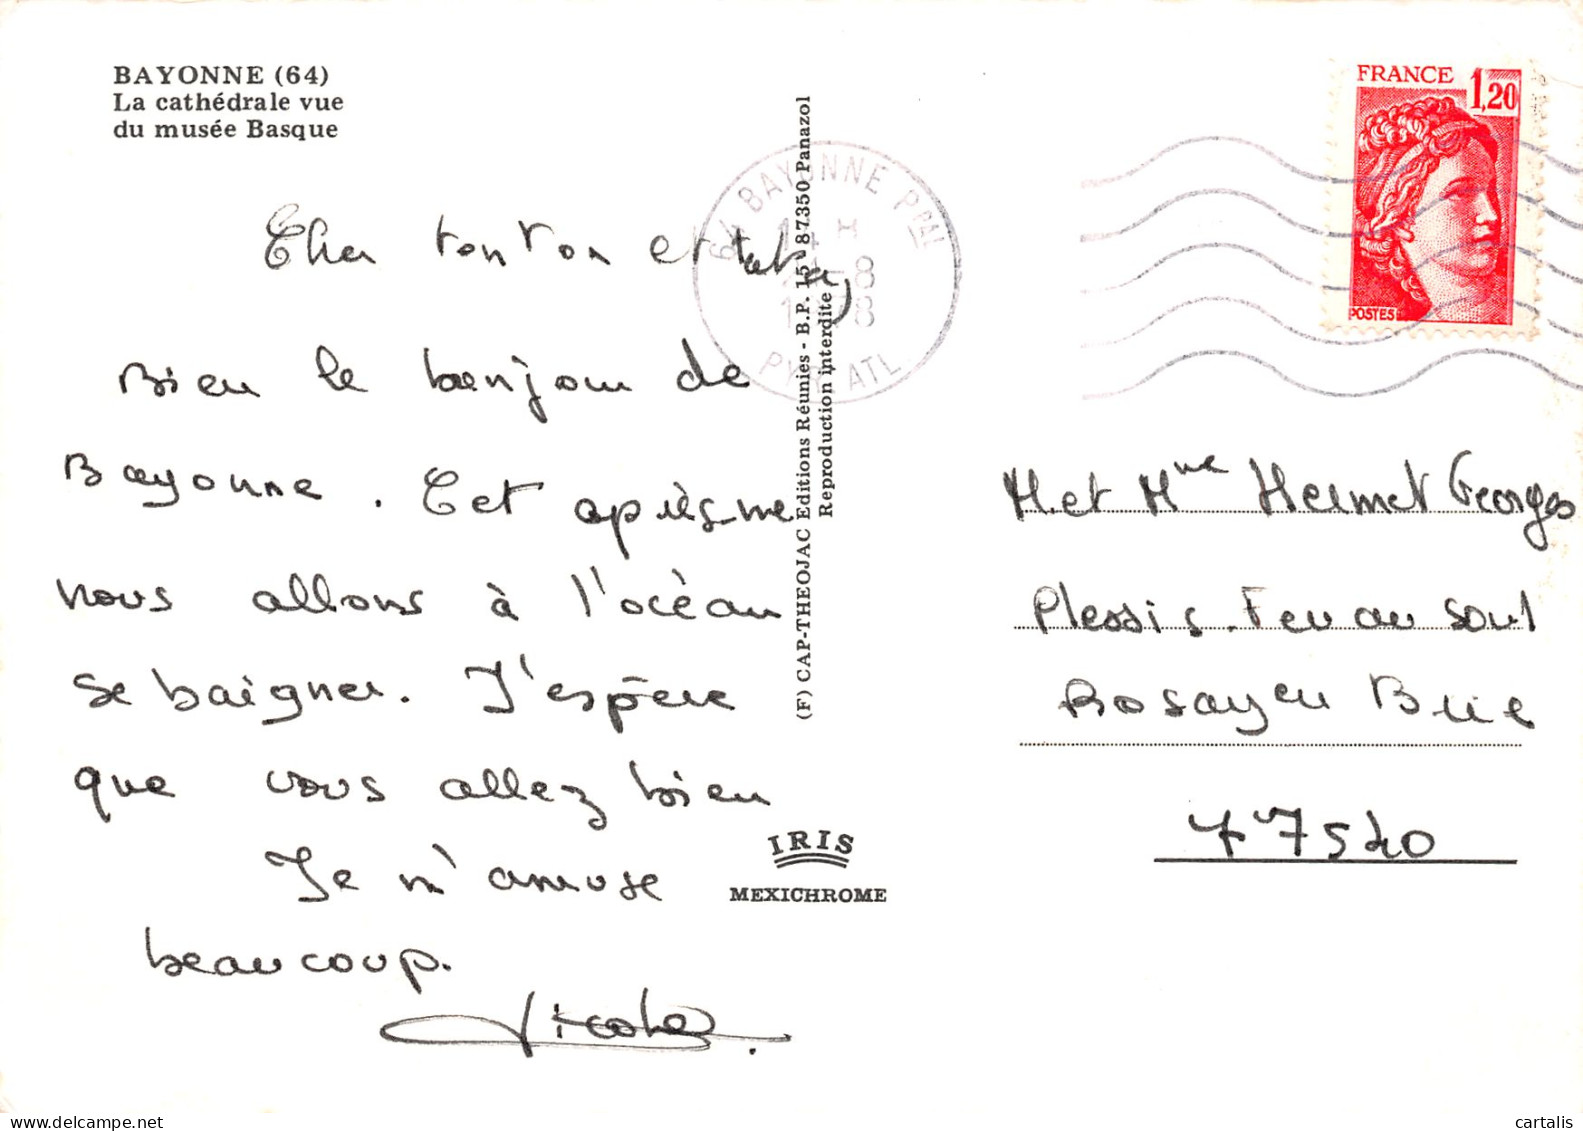 BAYONNE (64)
La cathédrale vue
du musée Basque
Cher tonton et tata,
Bien le bonjour de
Bayonne. Cet après-me
nous allons à l'océan
se baigner. J'espère
que vous allez bien
Je m'amuse
beaucoup.
(F) CAP-THEOJAC Editions Réunies - B.P. 15 - 87350 Panazol
Reproduction interdite
IRIS
MEXICHROME
64 BAYONNE Ppal
14 H
-8
PYR ATL
FRANCE
1,20
POSTES
M et Mme Hermet Georges
Plessis. Feu au
Rosayen Brie
77540
www.delcampe.net
cartalis